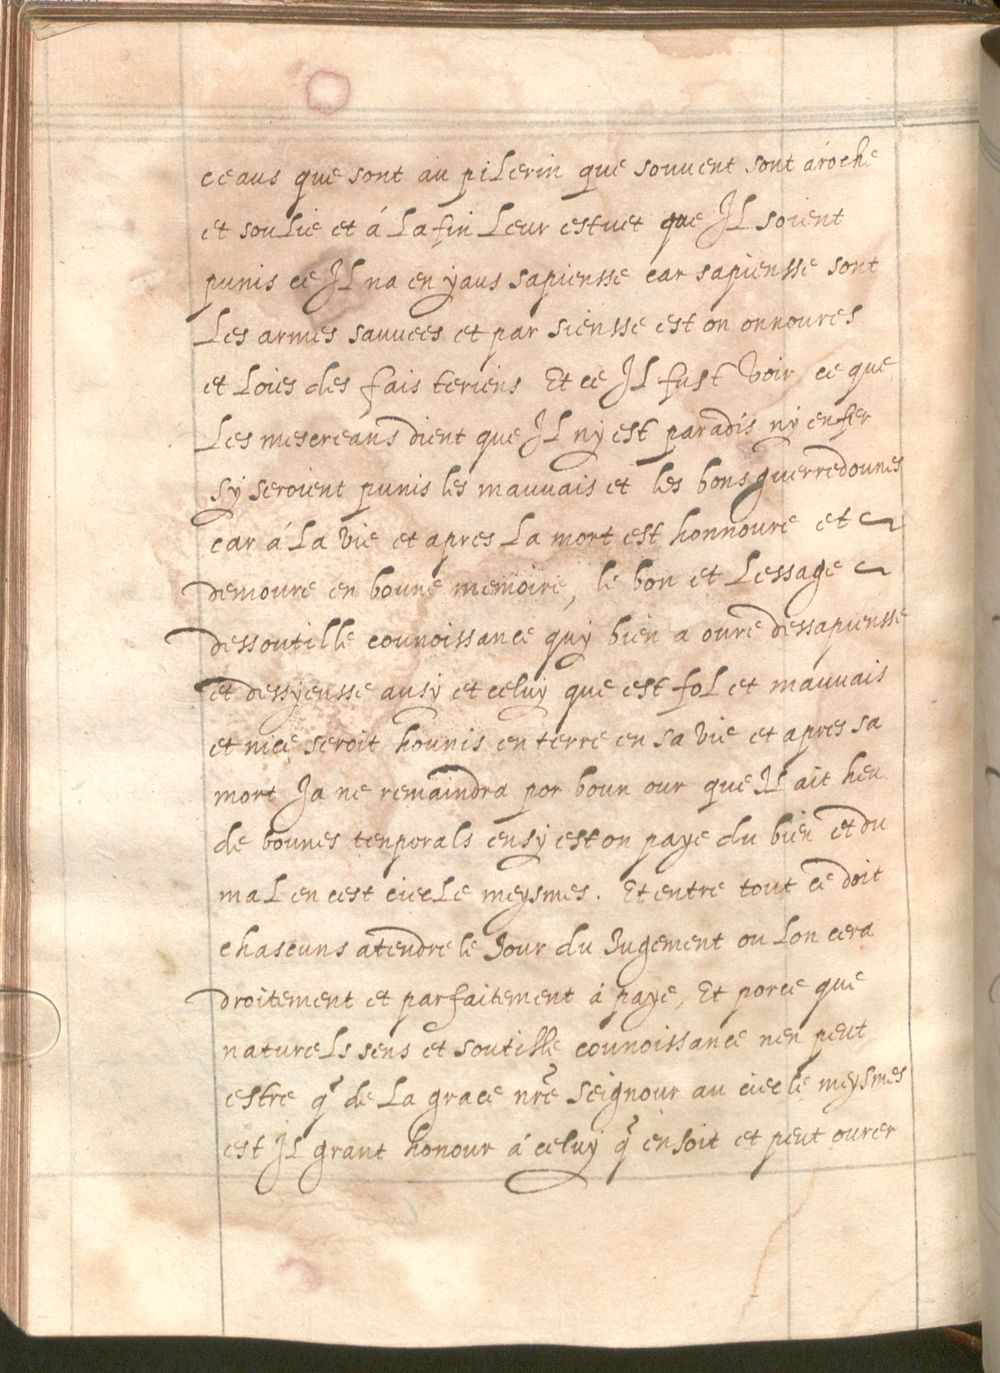 ceaus que sont au pilerin que souvent sontároche
et soulie et á la fin leur estuet que Il soient
punis ce Il na en yaus sapiensse car sapiensse sont
Les armes sauvees et par siensse est on onnoures
et Loies des fais teriens Et ce Il fust voir ce que
Les mescreans dient que Il ny est paradis ny enfer
sy seroient punis les mauvais et les bons guerredounes
car á La vie et apres La mort est honnoure et
demoure en boune memoire, le bon et Lessage
dessoutille counoissance quy bien a oure dessapiensse
et dessyensse ausy et celuy que est fol et mauvais
et nice seroit hounis en terre en sa vie et apres sa
mort Ja ne remaindra por boun our que Il ait heu
de bounes tenporals ensy est on paye du bien et du
mal en cest ciecle meysmes. Et entre tout ce doit
chascuns atendre le Jour du Jugement ou Lon cera
droitement et parfaitement á paye, Et porce que
naturels sens et soutille counoissance nen peut
estre q̃ de La grace nr̃e seignour au ciecle meysmes
est Il grant honour á celuy q̃ ensoit et peut ourer